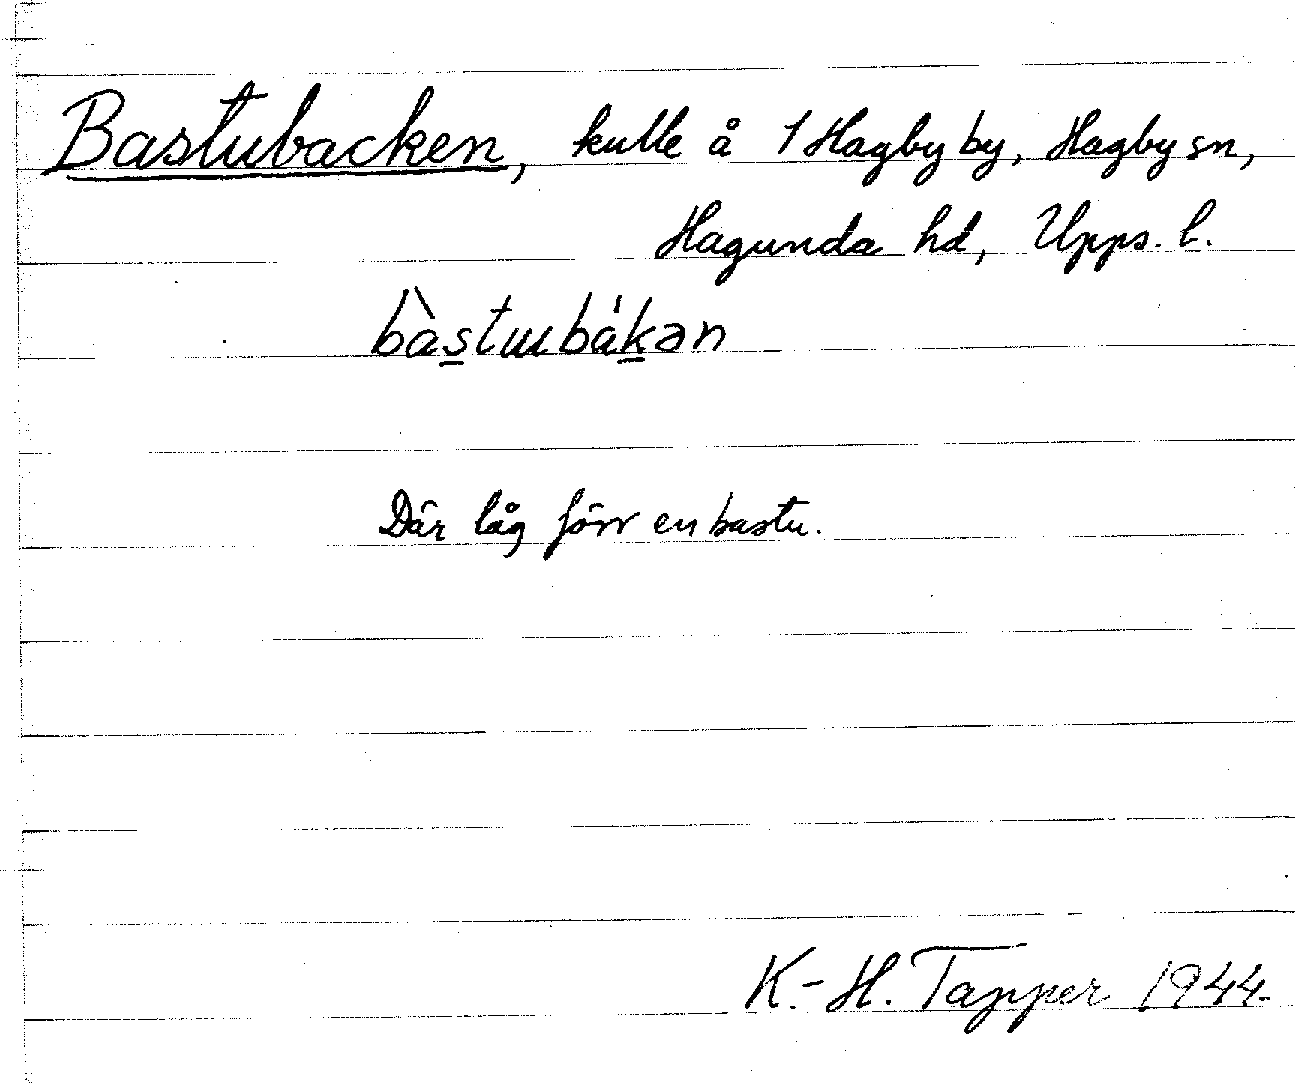 Bastubacken, kulle å 1 Hagby by, Hagby sn,
Hagunda hd, Upps. l.
bàstɯbákən
Där låg förr en bastu.
K.-H. Tapper 1944.